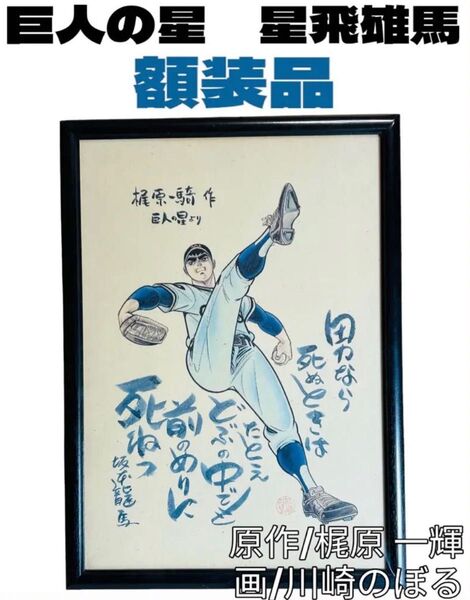 巨人の星　星飛雄馬
額装品
梶原一騎 作
巨人の星より
男なら
死ぬときは
たとえ
どぶの中でも
前のめりに
死ねっ
坂本龍馬
原作/梶原 一輝
画/川崎のぼる